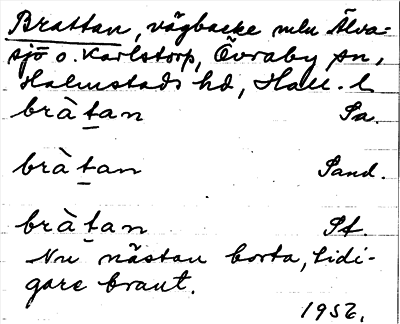 Brattan, vägbacke mln Älva-
sjö o. Karlstorp, Övraby sn,
Halmstads hd, Hall. l
bràt̠an Sa.
bràt̠an Sand.
bràt̠an St.
Nu nästan borta, tidi-
gare brant.
1952.